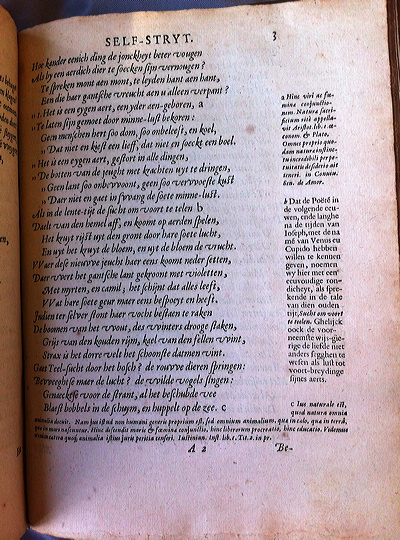 SELF-STRYT. 3
Hoe kander eenich ding de jonckheyt beter vougen
Als by een aerdich dier te soecken sijn vernougen?
Te spreken mont aen mont, te leyden hant aen hant,
Een die haer gantsche vreucht aen u alleen verpant?
't Is een eygen aert, een yder aen-geboren, a
Te laten sijn gemoet door minne-lust bekoren:
Geen menschen hert soo dom, soo onbeleeft, en koel,
Dat niet en kiest een lieff, dat niet en soeckt een boel.
Het is een eygen aert, gestort in alle dingen,
De botten van de jeught met krachten uyt te dringen,
Geen lant soo onbewoont, geen soo verwoeste kust
Daer niet en gaet in swang de soete minne-lust.
Als in de lente-tijt de lucht om voort te telen b
Daelt van den hemel aff, en koomt op aerden spelen,
Het kruyt rijst uyt den gront door hare soete lucht,
En uyt het kruyt de bloem, en uyt de bloem de vrucht.
VVaer dese nieuwe jeucht haer eens komt neder setten,
Daer vvert het gantsche lant gekroont met violetten,
Met myrten, en camil; het schijnt dat alles leeft,
VVat hare soete geur maer eens bespoeyt en heeft.
De boomen van het vvout, des vvinters drooge staken,
Grijs van den kouden rijm, kael van den fellen vvint,
Strax is het dorre velt het schoonste datmen vint.
Gaet Teel-sucht door het bosch? de rouvve dieren springen:
Bevveeghtse maer de lucht? de vvilde vogels singen:
Genaecktse voor de strant, al het beschubde vee
Blaest bobbels in de schuym, en huppelt op de zee. c
a Hinc viri ac fœ-
mina conjunctio-
nem. Natura sacri-
ficium rite appella-
vit Aristot. lib. 1. œ-
conom. & Plato,
Omnes proprio quo-
dam naturæ instin-
tu incredibili perpe-
tuitatis desiderio ait
teneri. in Convivio.
Sen. de Amor.
b Dat de Poëten in
de volgende eeu-
wen, ende langhe
na de tijden van
Ioseph, met de na-
me van Venus eu
Cupido hebben
willen te kennen
geven, noemen
wy hier met een
eenvoudige ron-
dicheyt, als spre-
kende in de tale
van dien ouden
tijt, Sucht om voort
te teelen. Ghelijck
oock de voor-
neemste wijs-gie-
rige de liefde niet
anders segghen te
wesen als lust tot
voort-breydinge
sijnes aerts.
c Ius naturale est,
quod natura omnia
animalia docuit. Nam jus istud non humani generis proprium est, sed omnium animalium, quæ in cœlo, quæ in terra,
quæ in mari nascuntur. Hinc descendit maris & fœminæ conjunctio, hinc liberorum procreatio, hinc educatio. Videmus
etenim cætera quoq; animalia istius juris peritia censeri. Iustinian. Inst. lib. 1. Tit. 2. in pr.
A 2 Be-